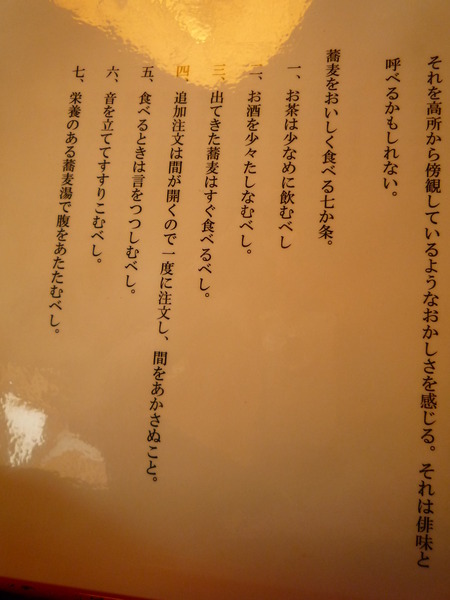 それを高所から傍観しているようなおかしさを感じる。それは俳味と
呼べるかもしれない。
蕎麦をおいしく食べる七か条。
一、お茶は少なめに飲むべし
二、お酒を少々たしなむべし。
三、出てきた蕎麦はすぐ食べるべし。
四、追加注文は間が開くので一度に注文し、間をあかさぬこと。
五、食べるときは言をつつしむべし。
六、音を立ててすすりこむべし。
七、栄養のある蕎麦湯で腹をあたたむべし。